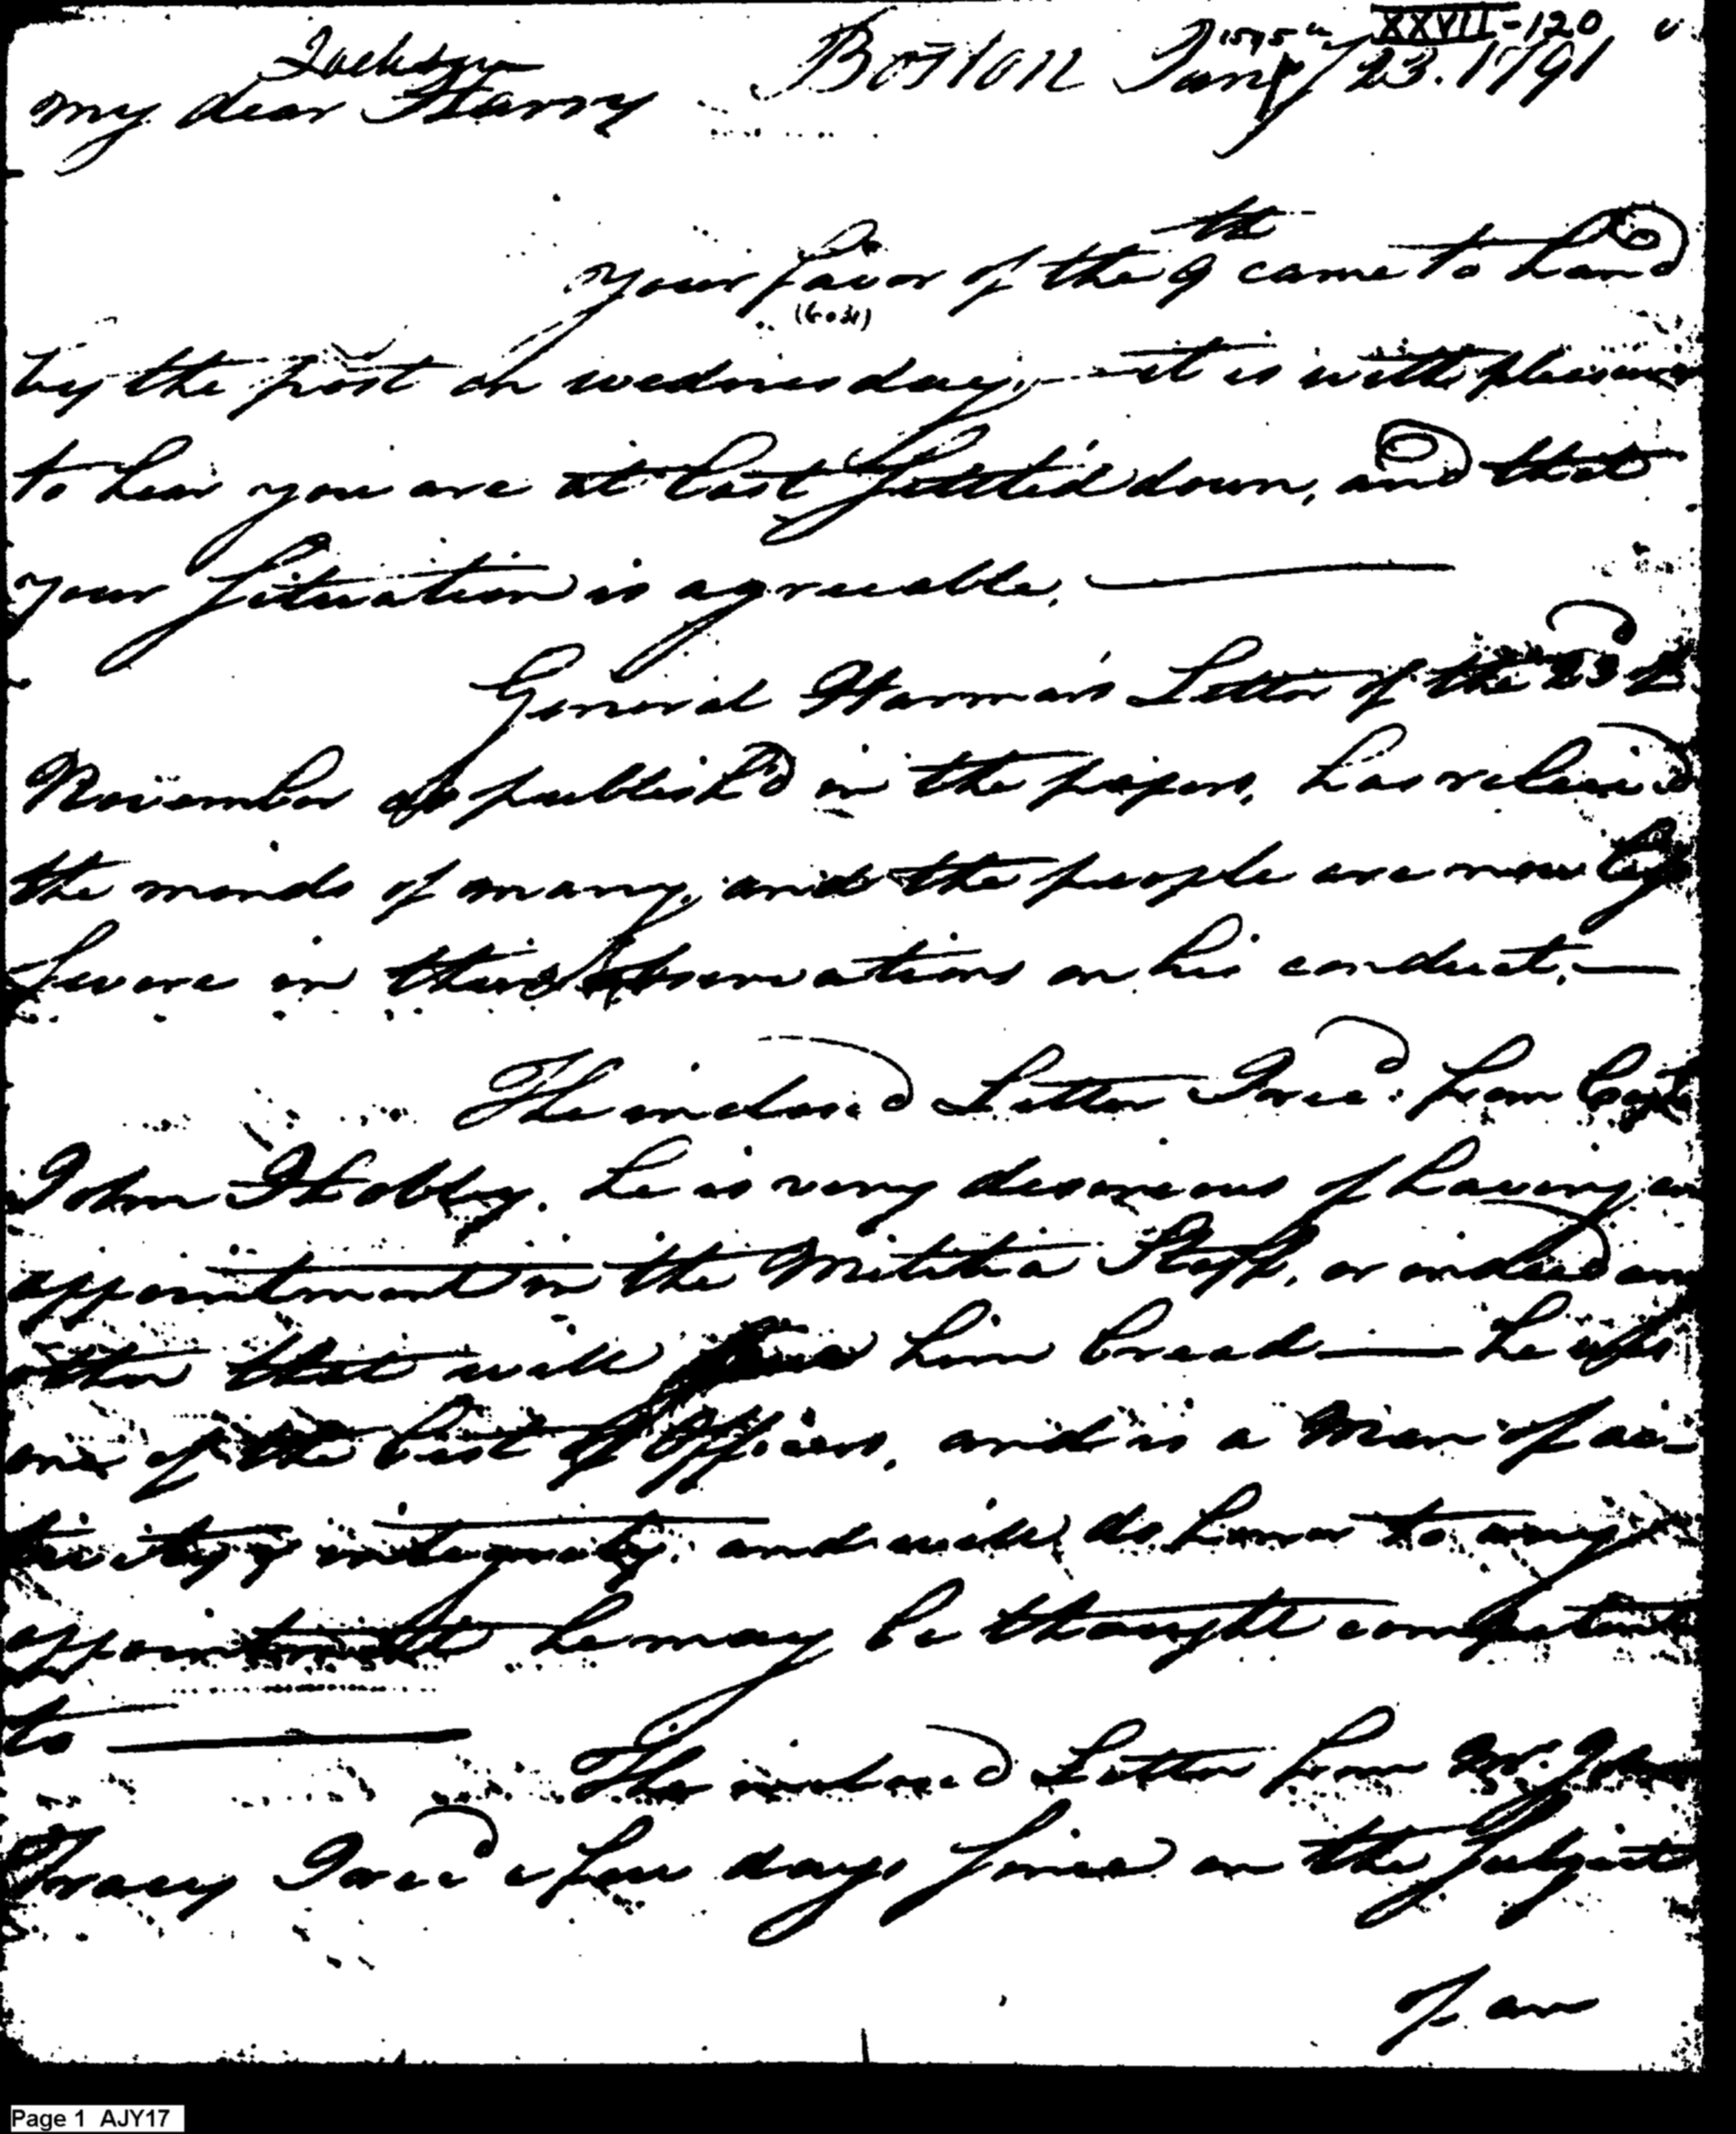 XXVII-120
Jackson
Boston Jany 23. 1791
My dear Harry
your favor of the 9th came to hand
by the post on wednesday, — it is with pleasure
to hear you are at last settled down, and that
your situation is agreeable. —
General Harmar's Letter of the 23d
November as publish'd in the papers, has releiv'd
the minds of many, and the people are now less
severe in their observations on his conduct. —
The inclosed Letter I rec'd. from Capt
John Hobby. he is very desireous of having an
appointment in the Militia Staff, or indeed any
other that will give him bread — he was
one of the best of Officers, and is a Man of ac-
tivity & integrity, and will do honor to any
appointment he may be thought competent
to —
The inclosed Letter from Mr. John
Tracy I rec'd a few days since on the subject
of an
Page 1 AJY17